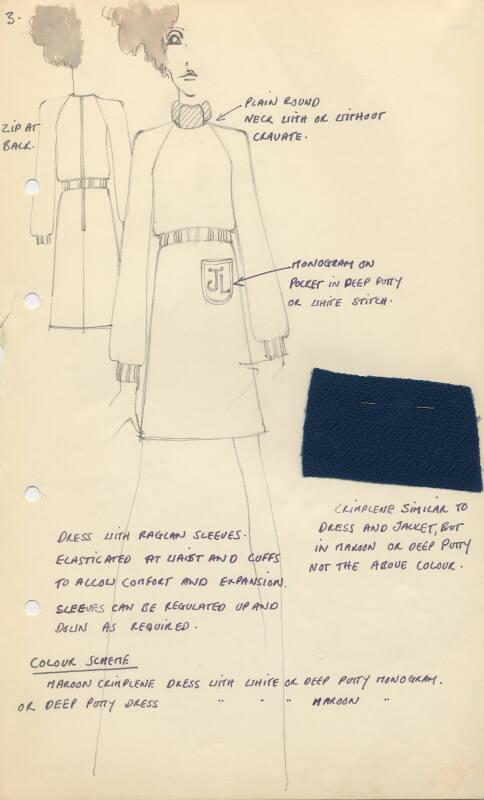 3.
ZIP AT
BACK.
PLAIN ROUND
NECK WITH OR WITHOUT
CRAVATE.
MONOGRAM ON
POCKET IN DEEP PUTTY
OR WHITE STITCH.
JL
CRIMPLENE SIMILAR TO
DRESS AND JACKET, BUT
IN MAROON OR DEEP PUTTY
NOT THE ABOVE COLOUR.
DRESS WITH RAGLAN SLEEVES.
ELASTICATED AT WAIST AND CUFFS
TO ALLOW COMFORT AND EXPANSION.
SLEEVES CAN BE REGULATED UP AND
DOWN AS REQUIRED.
COLOUR SCHEME
MAROON CRIMPLENE DRESS WITH WHITE OR DEEP PUTTY MONOGRAM.
OR DEEP PUTTY DRESS " " " MAROON "